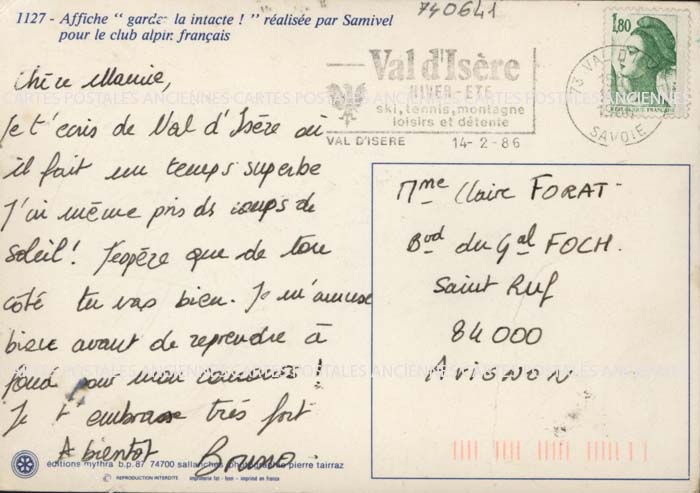 740641
1127 - Affiche " garder la intacte ! " réalisée par Samivel
pour le club alpin français
Val d'Isère
HIVER-ETE
ski, tennis, montagne
loisirs et détente
VAL D'ISERE 14-2-86
73 VAL D'
SAVOIE
1,80
CARTES POSTALES ANCIENNES CARTES POSTALES ANCIENNES
Chère Mamie,
Je t'écris de Val d'Isère où
il fait un temps superbe
J'ai même pris des coups de
soleil ! J'espère que de ton
coté tu vas bien. Je m'amuse
bien avant de reprendre à
fond pour mon concours !
Je t'embrasse très fort
A bientot Bruno
Mme Claire FORAT
Bvd du Gal FOCH.
Saint Ruf
84000
AVIGNON
éditions mythra b.p. 87 74700 sallanches photographie pierre tairraz
REPRODUCTION INTERDITE imprimerie fot - lyon - imprimé en france